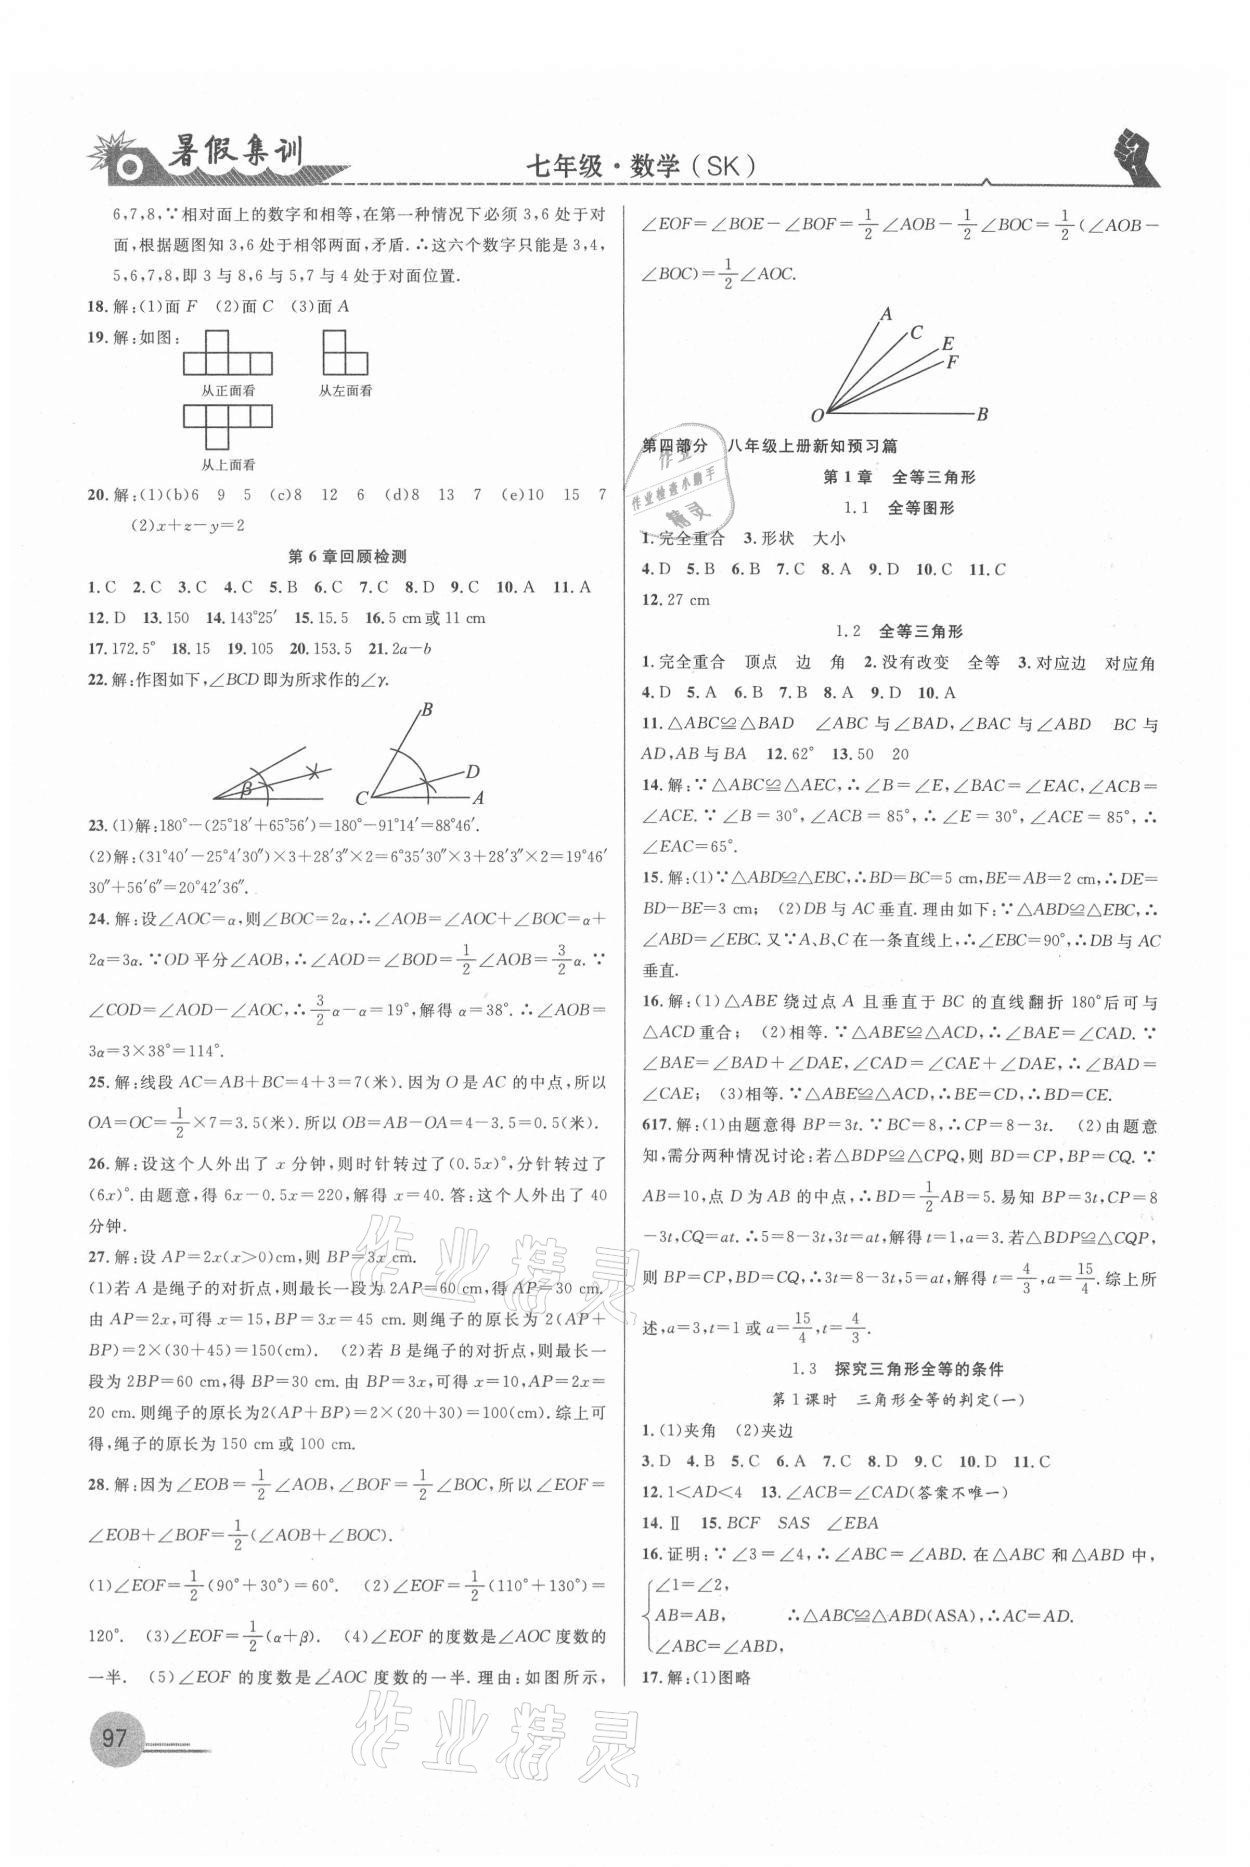 暑假集训
七年级·数学(SK)
6,7,8,∵相对面上的数字和相等,在第一种情况下必须 3,6 处于对
面,根据题图知 3,6 处于相邻两面,矛盾.∴这六个数字只能是 3,4,
5,6,7,8,即 3 与 8,6 与 5,7 与 4 处于对面位置.
18.解:(1)面 F (2)面 C (3)面 A
19.解:如图:
从正面看 从左面看
从上面看
20.解:(1)(b)6 9 5 (c)8 12 6 (d)8 13 7 (e)10 15 7
(2)x+z-y=2
第 6 章回顾检测
1.C 2.C 3.C 4.C 5.B 6.C 7.C 8.D 9.C 10.A 11.A
12.D 13.150 14.143°25′ 15.15.5 16.5 cm或 11 cm
17.172.5° 18.15 19.105 20.153.5 21.2a-b
22.解:作图如下,∠BCD 即为所求作的∠γ.
β B D C A
23.(1)解:180°-(25°18′+65°56′)=180°-91°14′=88°46′.
(2)解:(31°40′-25°4′30″)×3+28′3″×2=6°35′30″×3+28′3″×2=19°46′
30″+56′6″=20°42′36″.
24.解:设∠AOC=α,则∠BOC=2α,∴∠AOB=∠AOC+∠BOC=α+
2α=3α.∵OD 平分∠AOB,∴∠AOD=∠BOD=1/2∠AOB=3/2α.∵
∠COD=∠AOD-∠AOC,∴3/2α-α=19°,解得 α=38°.∴∠AOB=
3α=3×38°=114°.
25.解:线段 AC=AB+BC=4+3=7(米).因为 O 是 AC 的中点,所以
OA=OC=1/2×7=3.5(米).所以 OB=AB-OA=4-3.5=0.5(米).
26.解:设这个人外出了 x 分钟,则时针转过了(0.5x)°,分针转过了
(6x)°.由题意,得 6x-0.5x=220,解得 x=40.答:这个人外出了 40
分钟.
27.解:设 AP=2x(x>0)cm,则 BP=3x cm.
(1)若 A 是绳子的对折点,则最长一段为 2AP=60 cm,得 AP=30 cm.
由 AP=2x,可得 x=15,BP=3x=45 cm.则绳子的原长为 2(AP+
BP)=2×(30+45)=150(cm). (2)若 B 是绳子的对折点,则最长一
段为 2BP=60 cm,得 BP=30 cm.由 BP=3x,可得 x=10,AP=2x=
20 cm.则绳子的原长为2(AP+BP)=2×(20+30)=100(cm).综上可
得,绳子的原长为 150 cm 或 100 cm.
28.解:因为∠EOB=1/2∠AOB,∠BOF=1/2∠BOC,所以∠EOF=
∠EOB+∠BOF=1/2(∠AOB+∠BOC).
(1)∠EOF=1/2(90°+30°)=60°. (2)∠EOF=1/2(110°+130°)=
120°. (3)∠EOF=1/2(α+β). (4)∠EOF 的度数是∠AOC 度数的
一半. (5)∠EOF 的度数是∠AOC 度数的一半.理由:如图所示,
97
∠EOF=∠BOE-∠BOF=1/2∠AOB-1/2∠BOC=1/2(∠AOB-
∠BOC)=1/2∠AOC.
A C E F O B
第四部分 八年级上册新知预习篇
第 1 章 全等三角形
1.1 全等图形
1.完全重合 3.形状 大小
4.D 5.B 6.B 7.C 8.A 9.D 10.C 11.C
12.27 cm
1.2 全等三角形
1.完全重合 顶点 边 角 2.没有改变 全等 3.对应边 对应角
4.D 5.A 6.B 7.B 8.A 9.D 10.A
11.△ABC≌△BAD ∠ABC 与∠BAD,∠BAC 与∠ABD BC 与
AD,AB 与 BA 12.62° 13.50 20
14.解:∵△ABC≌△AEC,∴∠B=∠E,∠BAC=∠EAC,∠ACB
=∠ACE.∵∠B=30°,∠ACB=85°,∴∠E=30°,∠ACE=85°,∴
∠EAC=65°.
15.解:(1)∵△ABD≌△EBC,∴BD=BC=5 cm,BE=AB=2 cm,∴DE=
BD-BE=3 cm; (2)DB 与 AC 垂直.理由如下:∵△ABD≌△EBC,∴
∠ABD=∠EBC.又∵A、B、C 在一条直线上,∴∠EBC=90°,∴DB 与 AC
垂直.
16.解:(1)△ABE 绕过点 A 且垂直于 BC 的直线翻折 180°后可与
△ACD 重合; (2)相等.∵△ABE≌△ACD,∴∠BAE=∠CAD.∵
∠BAE=∠BAD+∠DAE,∠CAD=∠CAE+∠DAE,∴∠BAD=
∠CAE; (3)相等.∵△ABE≌△ACD,∴BE=CD,∴BD=CE.
617.解:(1)由题意得 BP=3t.∵BC=8,∴CP=8-3t. (2)由题意
知,需分两种情况讨论:若△BDP≌△CPQ,则 BD=CP,BP=CQ.∵
AB=10,点 D 为 AB 的中点,∴BD=1/2AB=5.易知 BP=3t,CP=8
-3t,CQ=at.∴5=8-3t,3t=at,解得 t=1,a=3.若△BDP≌△CQP,
则 BP=CP,BD=CQ,∴3t=8-3t,5=at,解得 t=4/3,a=15/4.综上所
述,a=3,t=1 或 a=15/4,t=4/3.
1.3 探究三角形全等的条件
第 1 课时 三角形全等的判定(一)
1.(1)夹角 (2)夹边
3.D 4.B 5.C 6.A 7.C 8.D 9.C 10.D 11.C
12.1<AD<4 13.∠ACB=∠CAD(答案不唯一)
14.Ⅱ 15.BCF SAS ∠EBA
16.证明:∵∠3=∠4,∴∠ABC=∠ABD.在△ABC 和△ABD 中,
∠1=∠2,
AB=AB, ∴△ABC≌△ABD(ASA),∴AC=AD.
∠ABC=∠ABD,
17.解:(1)图略
作业
作业检查小助手
精灵
作业精灵
作业精灵